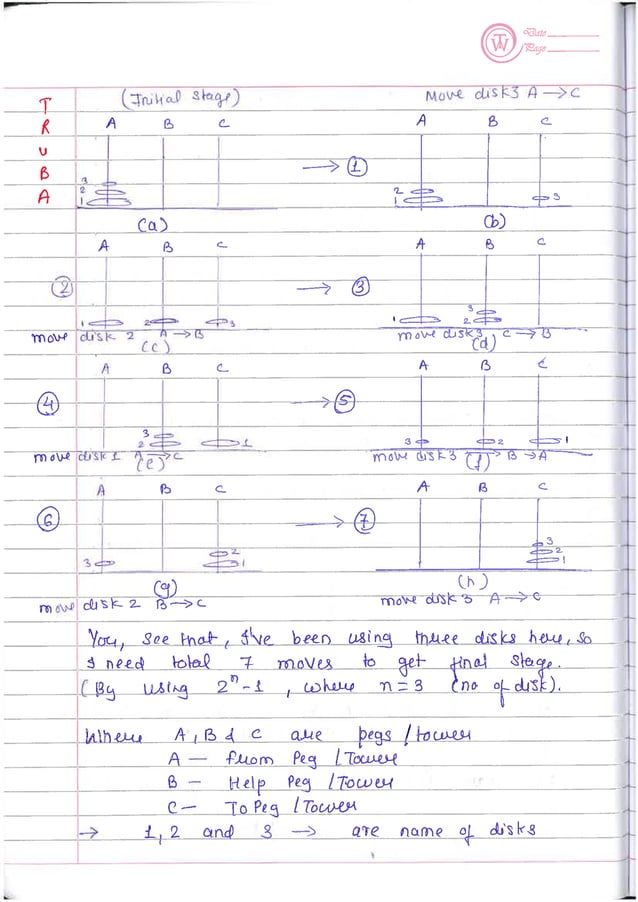 TW Date
Page
T
R
U
B
A
(Initial stage) Move disk3 A → C
A B C → ① A B C
3
2
1
2
1 3
(a) (b)
② A B C → ③ A B C
1 2 3
1 3
2
move disk 2 A → B move disk3 C → B
(c) (d)
④ A B C → ⑤ A B C
3
2 1
3 2 1
move disk1 A → C move disk3 → B → A
(e) (f)
⑥ A B C → ⑦ A B C
3 2
1
3
2
1
(g) (h)
move disk 2 B → C move disk 3 A → C
You, see that, I've been using three disks here, so
I need total 7 moves to get final stage.
(By using 2ⁿ-1, where n=3 (no of disk).
Where A, B & C are pegs / tower
A — from Peg / Tower
B — Help Peg / Tower
C — To Peg / Tower
→ 1, 2 and 3 → are name of disks